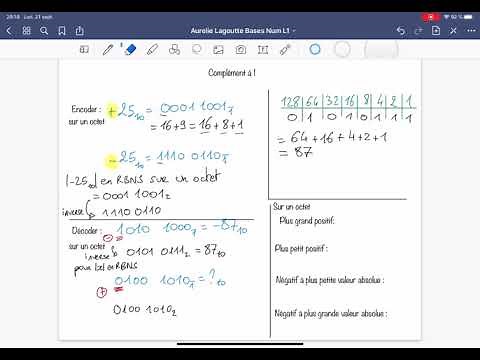 20:18 Lun. 21 sept.
92 %
Aurelie Lagoutte Bases Num L1
Complément à 1
Encoder :
sur un octet
+25₁₀ = 0001 1001₁̄
= 16+9 = 16+8+1
-25₁₀ = 1110 0110₁̄
|-25₁₀| en RBNS sur un octet
= 0001 1001₂
inverse
1110 0110
Décoder :
sur un octet
1010 1000₁̄ = -87₁₀
⊖
inverse
0101 0111₂ = 87₁₀
pour |x| en RBNS
0100 1010₁̄ = ?₁₀
⊕
0100 1010₂
128 64 32 16 8 4 2 1
0 1 0 1 0 1 1 1
= 64+16+4+2+1
= 87
Sur un octet
Plus grand positif:
Plus petit positif :
Négatif à plus petite valeur absolue :
Négatif à plus grande valeur absolue :